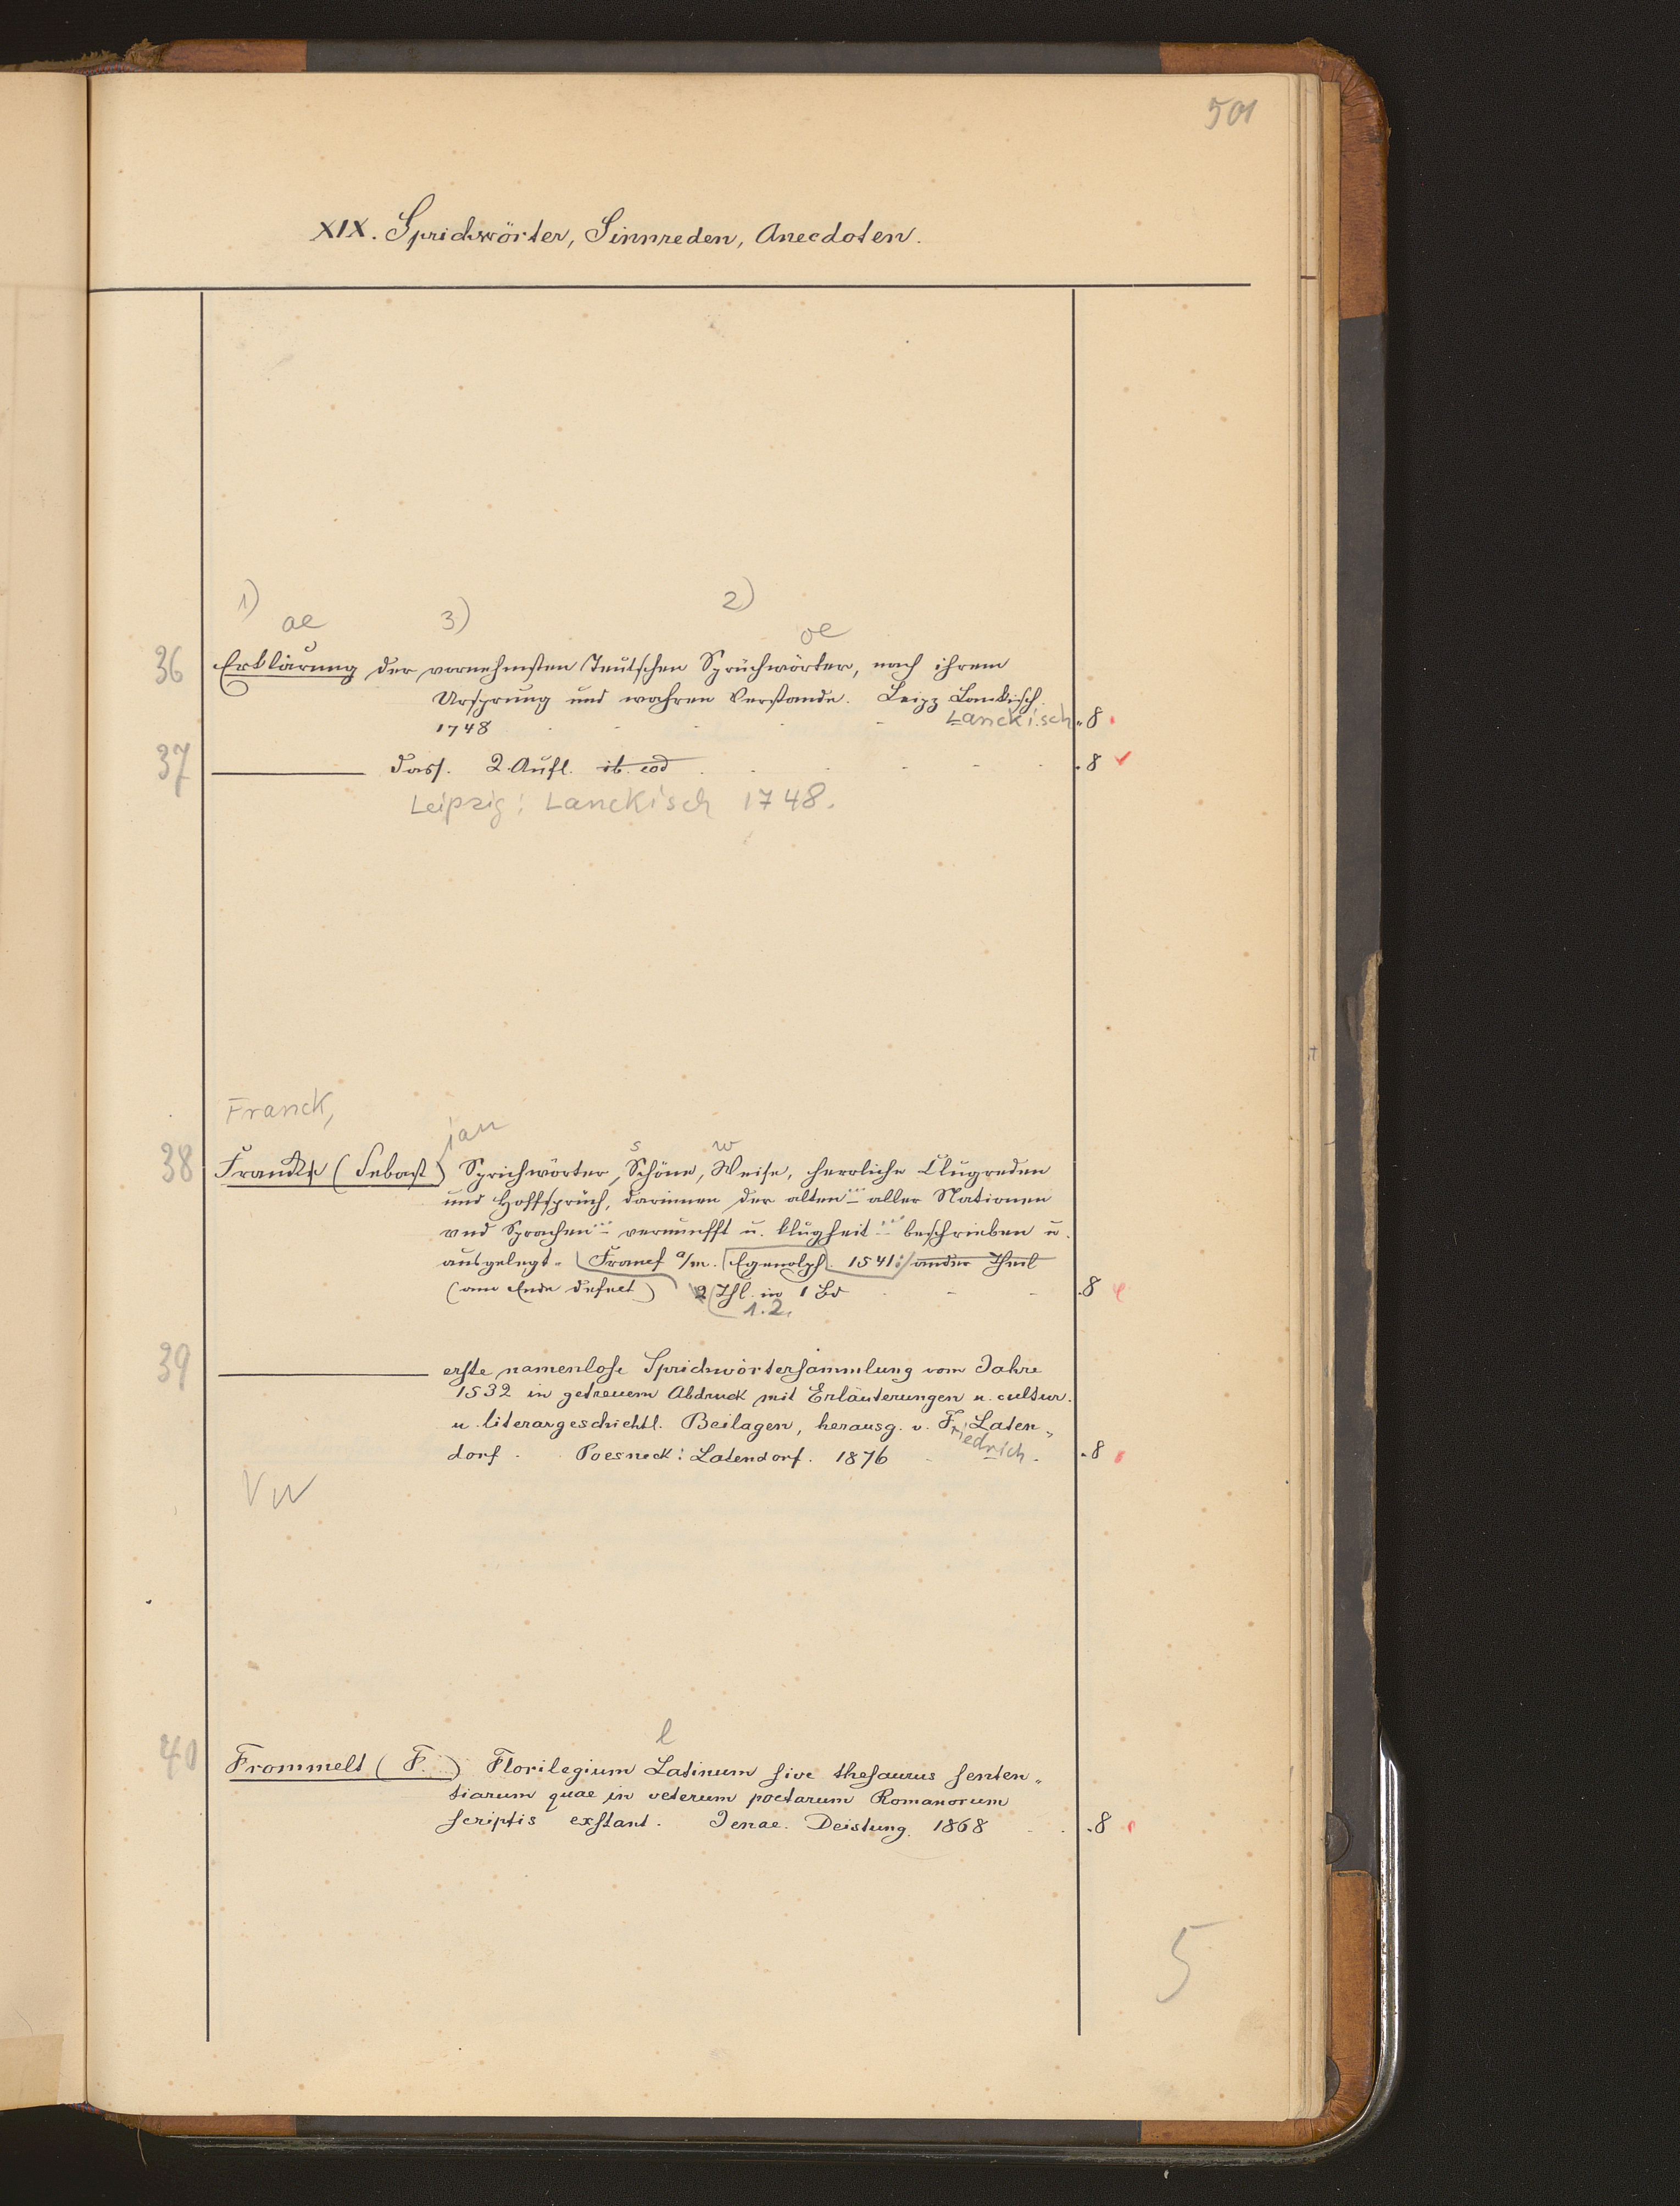 501
XIX. Sprichwörter, Sinnreden, Anecdoten.
1) 3) 2)
ae oe
36 Erklärung der vornehmsten Teutschen Sprüchwörter, nach ihrem
Ursprung und wahren Verstande. Leipz Lankisch.
1748 Lanckisch. 8
37 dass. 2. Aufl. ib. eod 8
Leipzig: Lanckisch 1748.
Franck,
ian
s w
38 (Sebast) Sprichwörter, Schöne, Weise, herrliche Clugreden
und Hoffsprüch, darinnen der alten ... aller Nationen
vnd Sprachen ... vernunfft u. klugheit ... beschrieben u.
ausgelegt. Francf a/m. Egenolph. 1541: ander Theil
(am Ende defect) 2 Thl. in 1 Bd 8
1.2.
39 erste namenlose Sprichwörtersammlung vom Jahre
1532 in getreuem Abdruck mit Erläuterungen u. cultur.
u. literargeschichtl. Beilagen, herausg. v. F. Laten„
riedrich.
dorf. Poesneck: Latendorf. 1876 8
VW
l
40 Frommelt (F. ) Florilegium Latinum sive thesaurus senten„
tiarum quae in veterum poetarum Romanorum
scriptis exstant. Jenae. Deistung. 1868 8
5